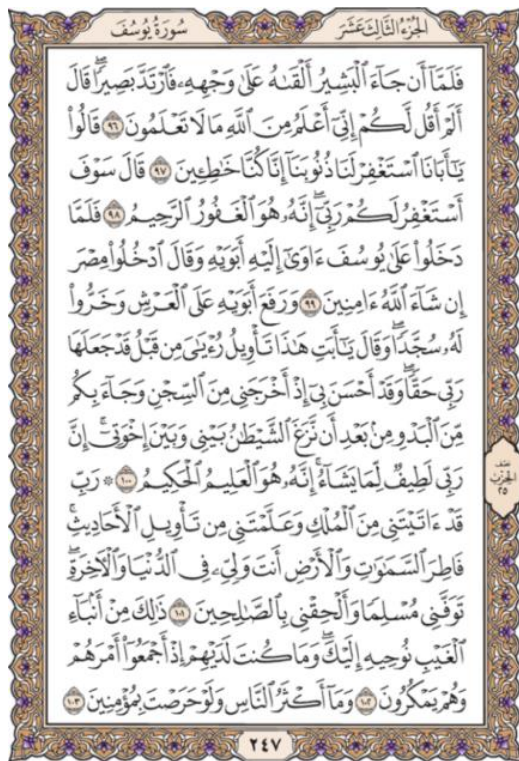 سُورَةُ يُوسُفَ
الجُزْءُ الثَّالِثَ عَشَرَ
فَلَمَّآ أَن جَآءَ ٱلْبَشِيرُ أَلْقَىٰهُ عَلَىٰ وَجْهِهِۦ فَٱرْتَدَّ بَصِيرًاۖ قَالَ
أَلَمْ أَقُل لَّكُمْ إِنِّىٓ أَعْلَمُ مِنَ ٱللَّهِ مَا لَا تَعْلَمُونَ ٩٦ قَالُوا۟
يَـٰٓأَبَانَا ٱسْتَغْفِرْ لَنَا ذُنُوبَنَآ إِنَّا كُنَّا خَـٰطِـِٔينَ ٩٧ قَالَ سَوْفَ
أَسْتَغْفِرُ لَكُمْ رَبِّىٓۖ إِنَّهُۥ هُوَ ٱلْغَفُورُ ٱلرَّحِيمُ ٩٨ فَلَمَّا
دَخَلُوا۟ عَلَىٰ يُوسُفَ ءَاوَىٰٓ إِلَيْهِ أَبَوَيْهِ وَقَالَ ٱدْخُلُوا۟ مِصْرَ
إِن شَآءَ ٱللَّهُ ءَامِنِينَ ٩٩ وَرَفَعَ أَبَوَيْهِ عَلَى ٱلْعَرْشِ وَخَرُّوا۟
لَهُۥ سُجَّدًاۖ وَقَالَ يَـٰٓأَبَتِ هَـٰذَا تَأْوِيلُ رُءْيَـٰىَ مِن قَبْلُ قَدْ جَعَلَهَا
رَبِّى حَقًّاۖ وَقَدْ أَحْسَنَ بِىٓ إِذْ أَخْرَجَنِى مِنَ ٱلسِّجْنِ وَجَآءَ بِكُم
مِّنَ ٱلْبَدْوِ مِنۢ بَعْدِ أَن نَّزَغَ ٱلشَّيْطَـٰنُ بَيْنِى وَبَيْنَ إِخْوَتِىٓۚ إِنَّ
رَبِّى لَطِيفٌ لِّمَا يَشَآءُۚ إِنَّهُۥ هُوَ ٱلْعَلِيمُ ٱلْحَكِيمُ ١٠٠ ۞ رَبِّ
قَدْ ءَاتَيْتَنِى مِنَ ٱلْمُلْكِ وَعَلَّمْتَنِى مِن تَأْوِيلِ ٱلْأَحَادِيثِۚ
فَاطِرَ ٱلسَّمَـٰوَٰتِ وَٱلْأَرْضِ أَنتَ وَلِىِّۦ فِى ٱلدُّنْيَا وَٱلْـَٔاخِرَةِۖ
تَوَفَّنِى مُسْلِمًا وَأَلْحِقْنِى بِٱلصَّـٰلِحِينَ ١٠١ ذَٰلِكَ مِنْ أَنۢبَآءِ
ٱلْغَيْبِ نُوحِيهِ إِلَيْكَۖ وَمَا كُنتَ لَدَيْهِمْ إِذْ أَجْمَعُوٓا۟ أَمْرَهُمْ
وَهُمْ يَمْكُرُونَ ١٠٢ وَمَآ أَكْثَرُ ٱلنَّاسِ وَلَوْ حَرَصْتَ بِمُؤْمِنِينَ ١٠٣
نصف
الحِزْب
٢٥
٢٤٧